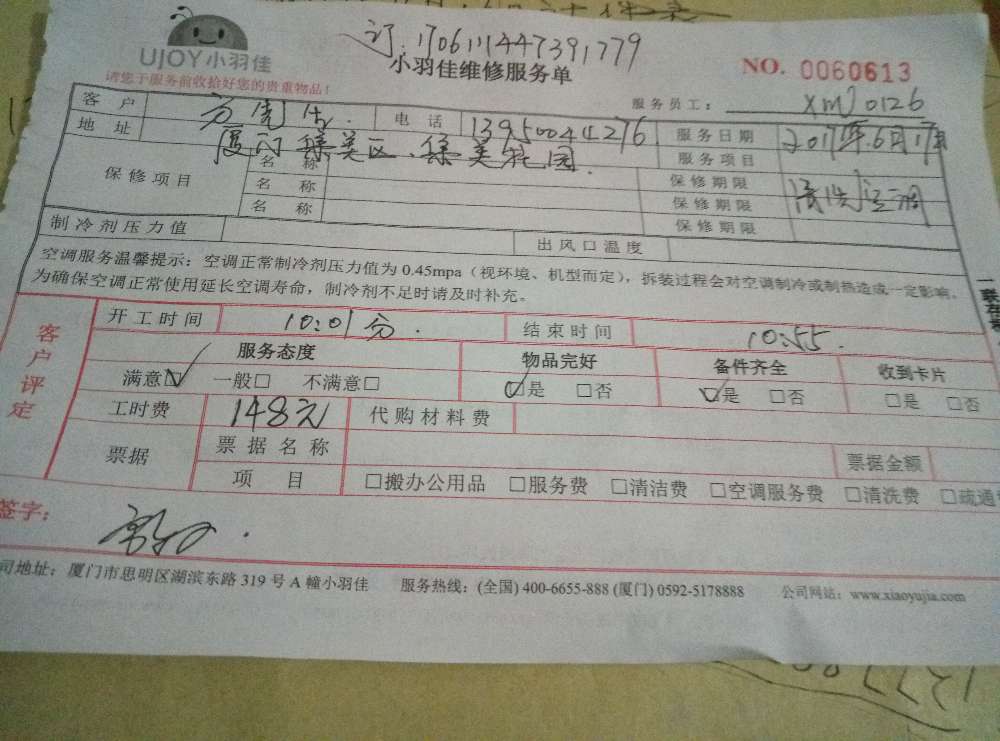 订.1706111447391779
UJOY小羽佳
小羽佳维修服务单
NO. 0060613
请您于服务前收拾好您的贵重物品！
服务员工： XMJ0126
客户 电话 13950044276 服务日期 2017年6月17日
地址 厦门集美区.集美花园. 服务项目 清洗空调
保修项目 名称 保修期限
名称 保修期限
名称 保修期限
制冷剂压力值 出风口温度
空调服务温馨提示：空调正常制冷剂压力值为 0.45mpa（视环境、机型而定），拆装过程会对空调制冷或制热造成一定影响。
为确保空调正常使用延长空调寿命，制冷剂不足时请及时补充。
客户评定
开工时间 10:01分. 结束时间 10:55.
服务态度 物品完好 备件齐全 收到卡片
满意☑ 一般□ 不满意□ ☑是 □否 ☑是 □否 □是 □否
工时费 148元 代购材料费
票据 票据名称 票据金额
项目 □搬办公用品 □服务费 □清洁费 □空调服务费 □清洗费 □疏通
签字：
司地址：厦门市思明区湖滨东路 319 号 A 幢小羽佳 服务热线：(全国) 400-6655-888 (厦门) 0592-5178888 公司网站：www.xiaoyujia.com